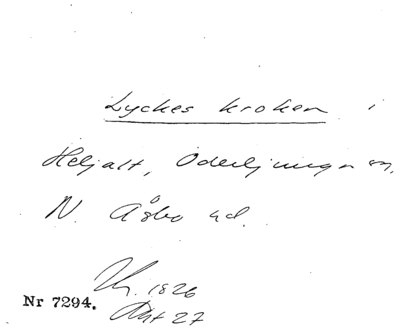 Lyckes kroken i
Heljalt, Öderljunga sn.
N. Åsbo hd.
Lh. 1826
Akt 27
Nr 7294.